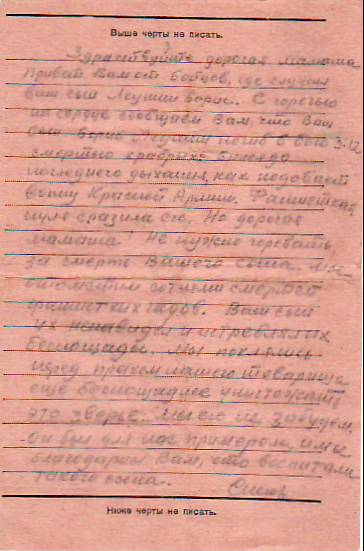 Выше черты не писать.
Здравствуйте дорогая мамаша
привет Вам от бойцов, где служил
ваш сын Леушин Борис. С горечью
на сердце сообщаем Вам, что Ваш
сын Борис Леушин погиб в бою 3.12
смертью храбрых до последнего дыхания, как подобает
воину Красной Армии. Фашистская
пуля сразила его. Но дорогая
мамаша! Не нужно горевать
за смерть Вашего сына. Мы
отомстим сотнями смертей
фашистких гадов. Ваш сын
их ненавидел и истреблял их
беспощадно. Мы поклялись
перед прахом нашего товарища
еще беспощаднее уничтожать
это зверье. Мы его не забудем.
Он был для нас примером, и мы
благодарны Вам, что воспитали
такого сына.
Ниже черты не писать.